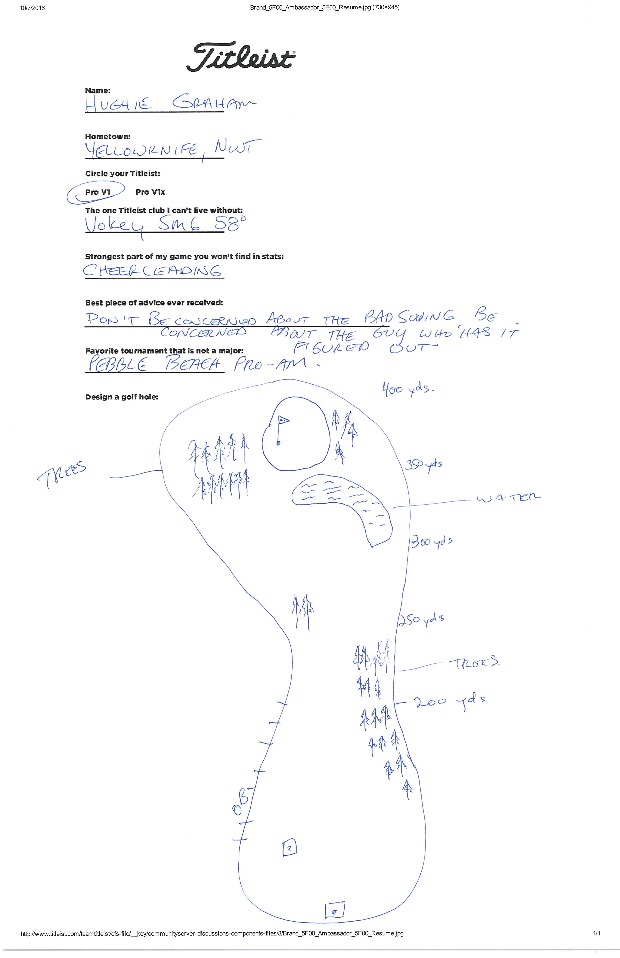 Brand_5F00_Ambassador_5F00_Resume.jpg (730×945)
Titleist
Name:
HUGHIE GRAHAM
Hometown:
YELLOWKNIFE, NWT
Circle your Titleist:
Pro V1 Pro V1x
The one Titleist club I can't live without:
VOKEY SM6 58°
Strongest part of my game you won't find in stats:
CHEERLEADING
Best piece of advice ever received:
DON'T BE CONCERNED ABOUT THE BAD SWING BE
CONCERNED ABOUT THE GUY WHO HAS IT
FIGURED OUT-
Favorite tournament that is not a major:
PEBBLE BEACH PRO-AM.
Design a golf hole:
400 yds.
TREES
350 yds
WATER
300 yds
250 yds
TREES
200 yds
OB
1/1